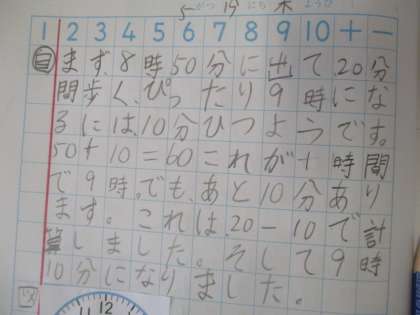 5がつ19にち木ようび
1 2 3 4 5 6 7 8 9 10 十 一
自 まず、8時50分に出て、20分
間歩く、ぴったり9時にな
るには、10分ひつようです。
50+10=60これが+時間
で9時。でも、あと10分あり
ます。これは、20-10で計
算しました。そして9時
10分になりました。
図
11 12 1